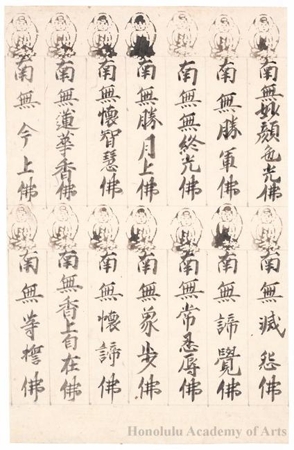 南無妙顔色光佛
南無勝軍佛
南無無終光佛
南無勝月上佛
南無懐智慧佛
南無蓮華香佛
南無今上佛
南無滅怨佛
南無諦覺佛
南無常忍辱佛
南無象步佛
南無懐諦佛
南無香上自在佛
南無等佛
Honolulu Academy of Arts